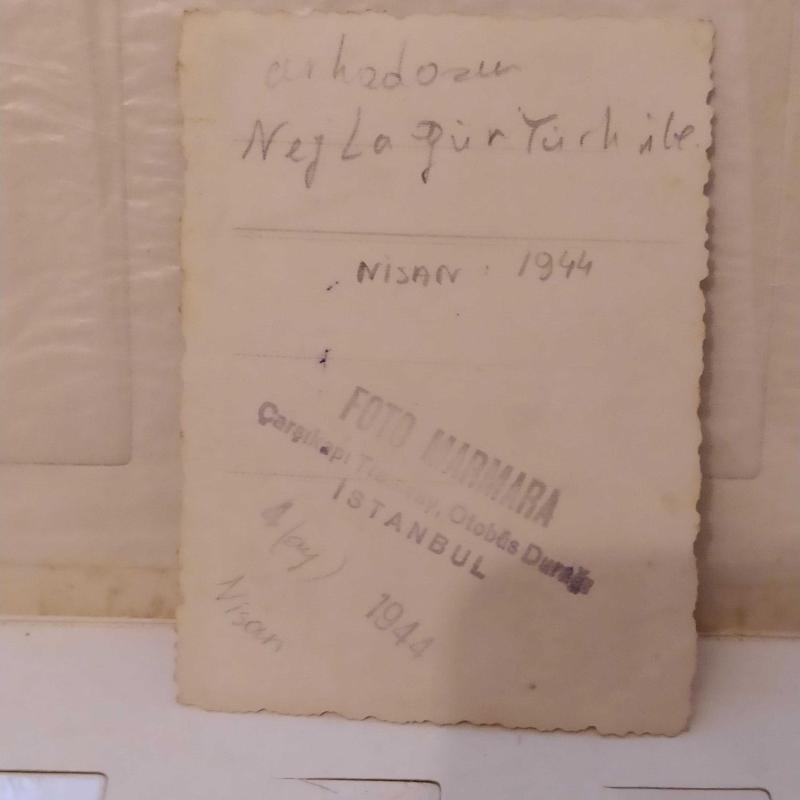 arkadaşım
Nejla Gürtürk ile.
NiSAN : 1944
FOTO MARMARA
Çarşıkapı Tramvay, Otobüs Durağı
İSTANBUL
4 (ay)
Nisan 1944